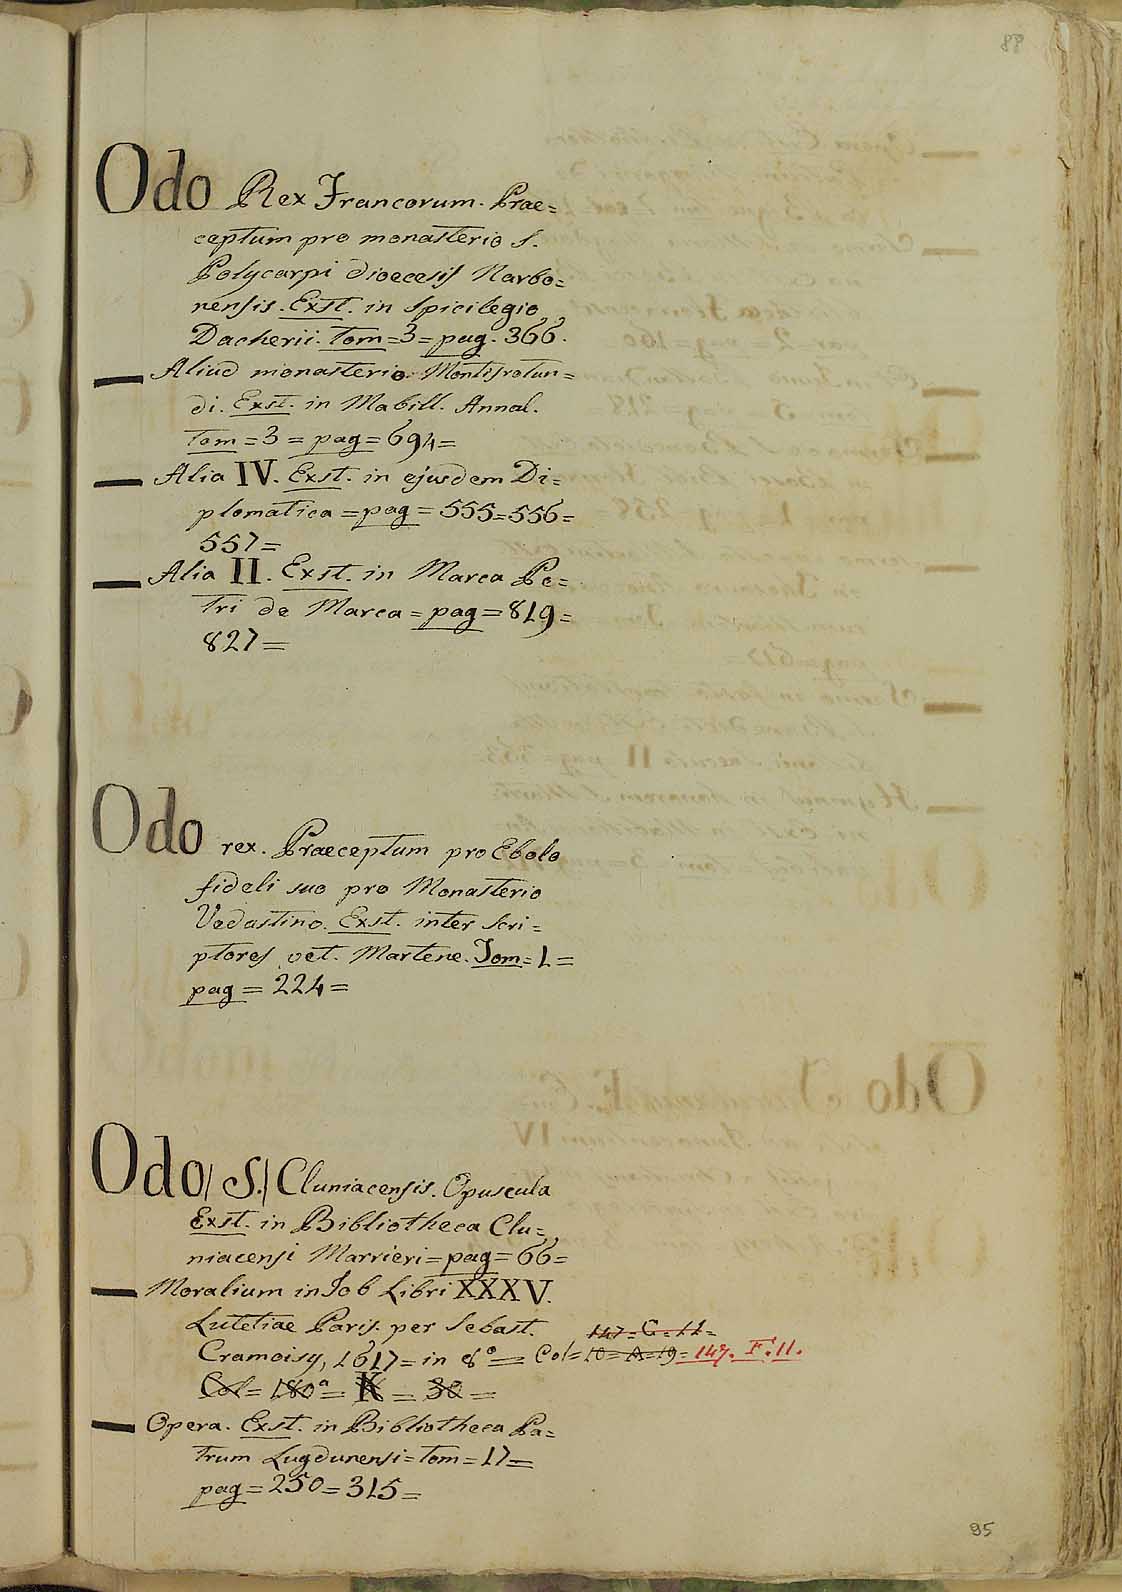 88
Odo Rex Francorum. Prae=
ceptum pro monasterio s.
Polycarpi dioecesis Narbo=
nensis. Exst. in Spicilegio
Dacherii. tom=3=pag. 366.
Aliud monasterio Montisrotun=
di. Exst. in Mabill. Annal.
tom=3=pag=694=
Alia IV. Exst. in ejusdem Di=
plomatica=pag=555=556=
557=
Alia II. Exst. in Marca Pe=
tri de Marca=pag=819=
827=
Odo rex. Praeceptum pro Ebolo
fideli suo pro Monasterio
Vedastino. Exst. inter scri=
ptores vet. Martene. Tom=1=
pag=224=
Odo (S.) Cluniacensis. Opuscula
Exst. in Bibliotheca Clu=
niacensi Marrieri=pag=66=
Moralium in Iob Libri XXXV.
Lutetiae Paris. per Sebast.
147=C=11=
Cramoisy, 1617=in 8°=Col=10=A=19=149. F. 11.
Col=180ª=K=30=
Opera. Exst. in Bibliotheca Pa=
trum Lugdunensi=Tom=17=
pag=250=315=
95